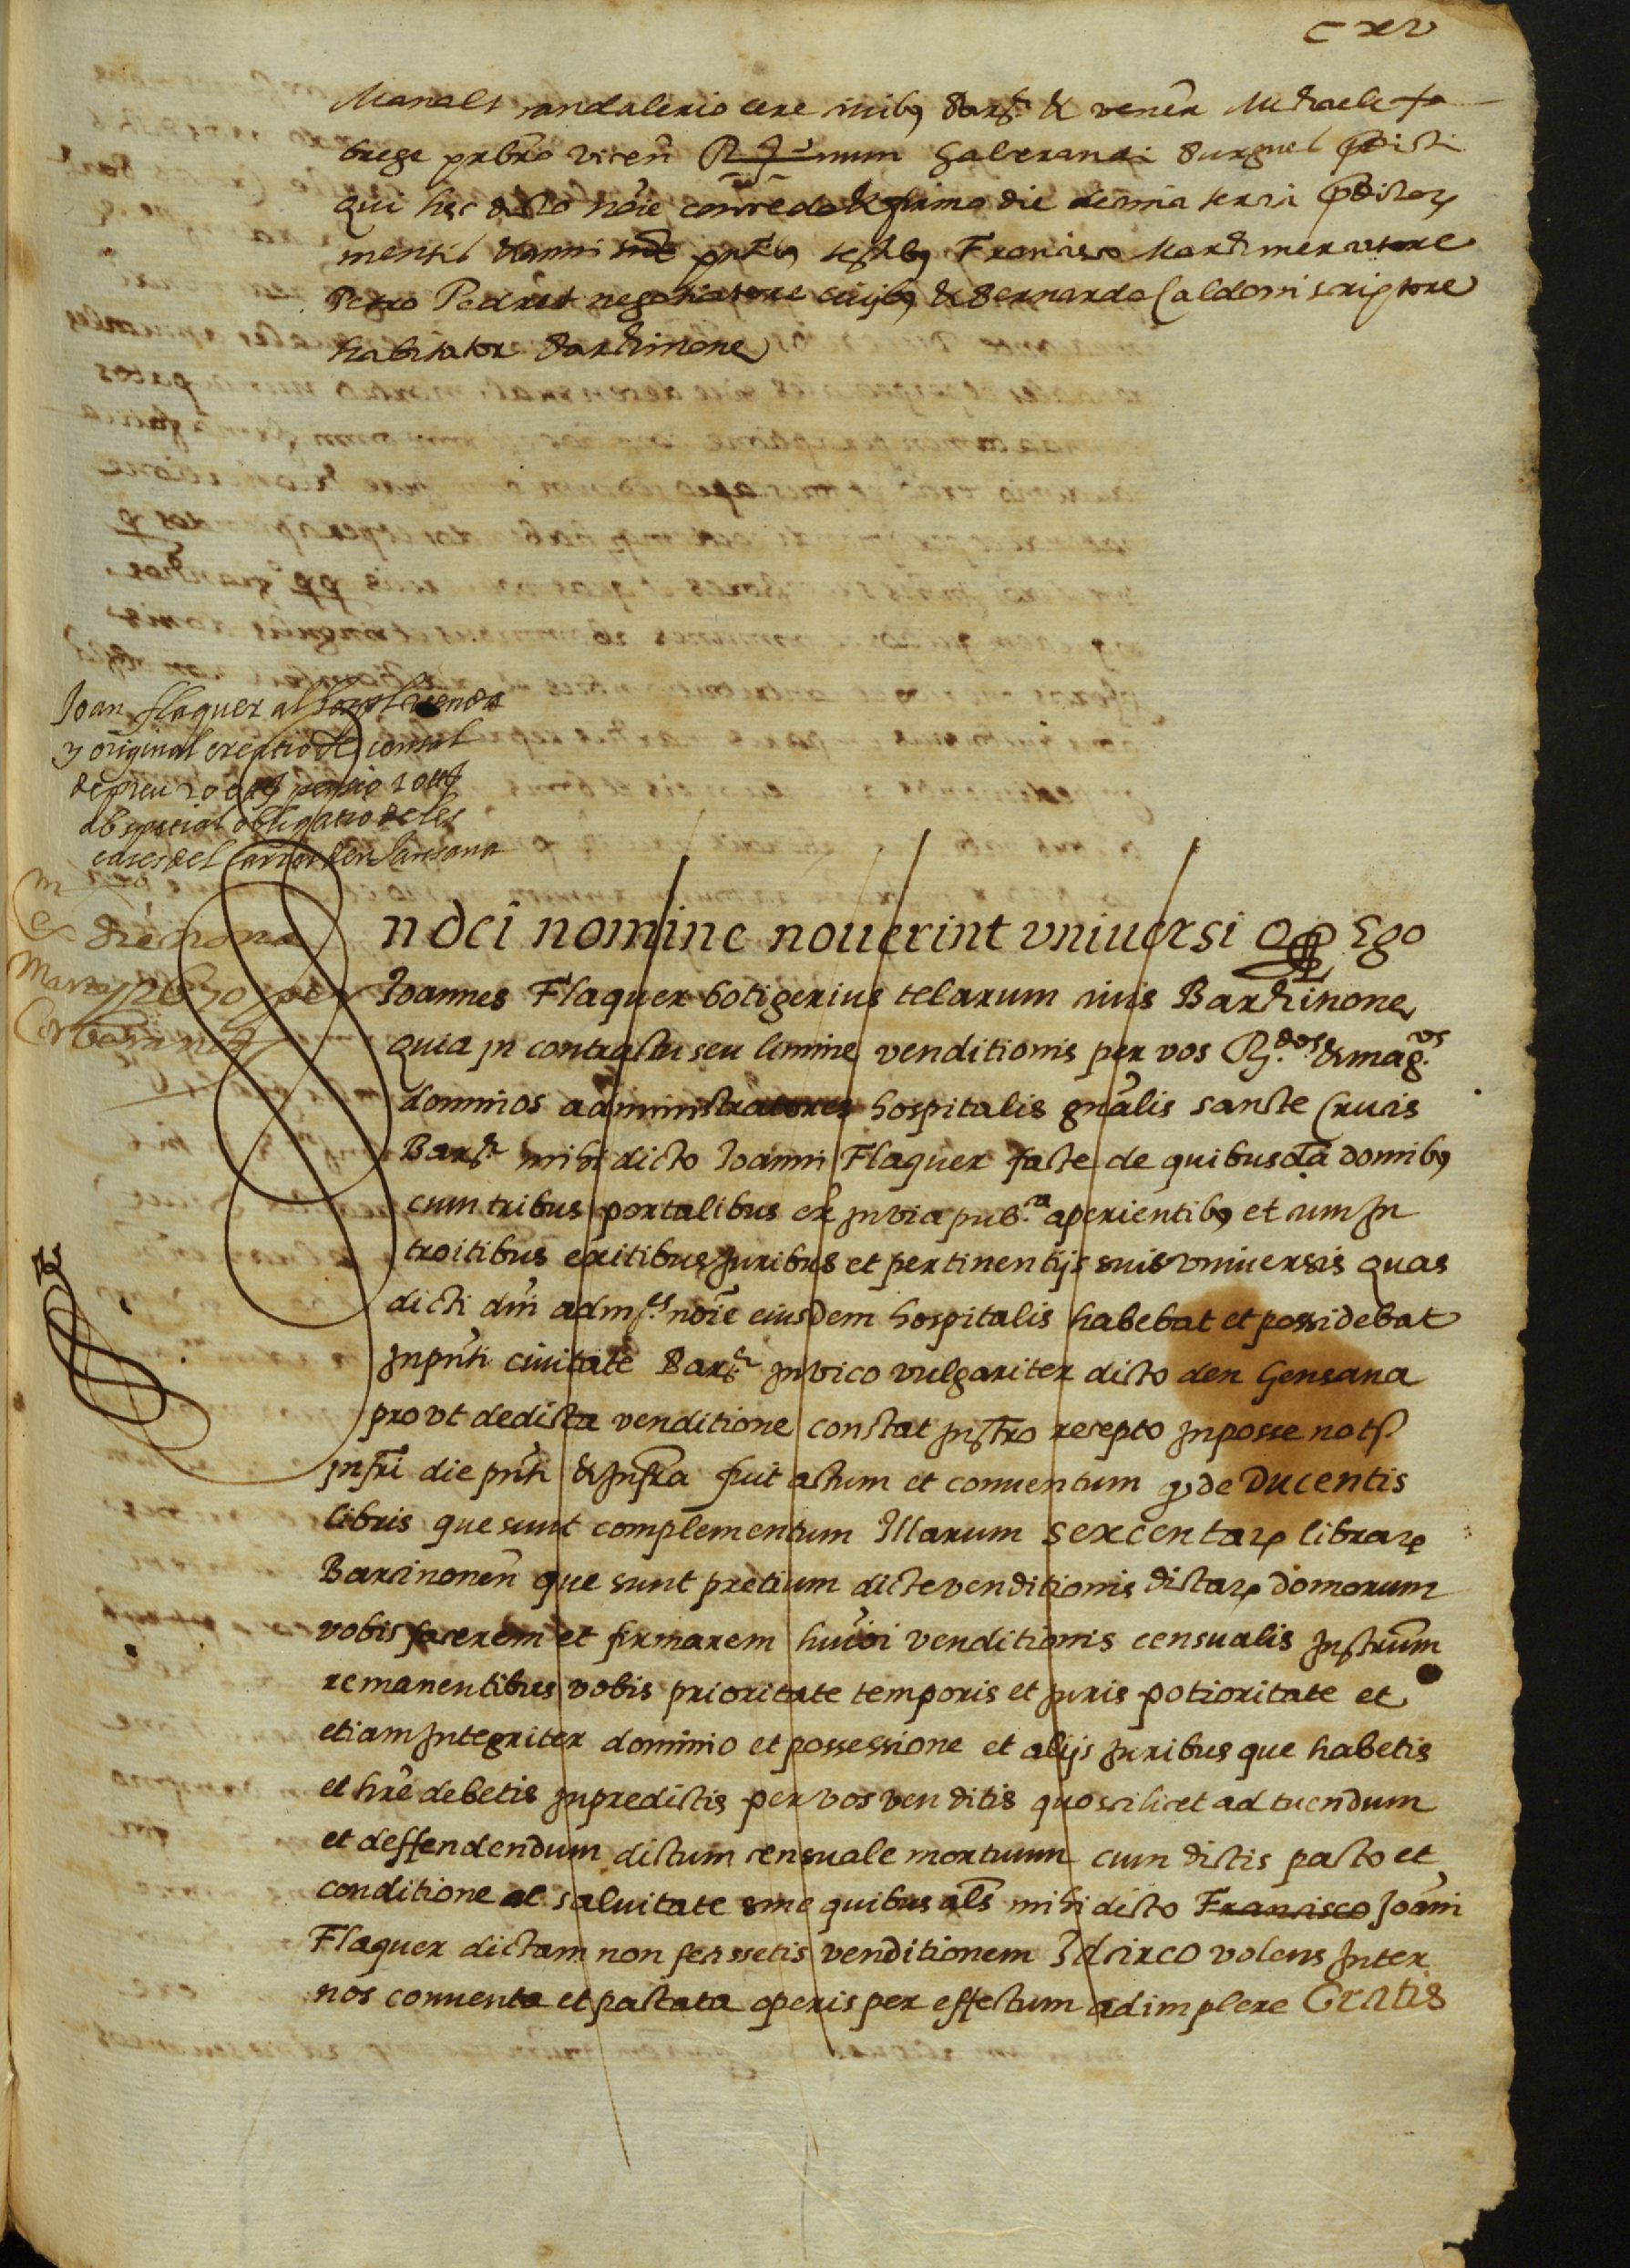 C xv
Manals candalerio cere civibꝯ Barne & venēr Michaele fa
brege prbro vicen num Galcerandi Burgues pdicti
Qui hec dicto noīe concedo & firmo die decima tercia pdictoꝝ
mensis & anni pntibꝯ testibꝯ Francisco March mercatore
Petro Pedret negotiatore civibꝯ & Bernardo Caldoni scriptore
habitator Barchinone
Joan Flaquer al venda
y original creatio de consal
de preu 200 ₶ pensio 10 ₶
ab spetial obligatio de les
cases del Carrer den Jansana
die nona
Martij 1630 per
n dei nomine nouerint vniuersi Qp Ego
Joannes Flaquer botigerius telarum ciuis Barchinone
quia in contractu seu limine venditionis per vos R.dos & mag.cos
dominos administratores hospitalis gnālis sancte Crucis
Barne mihi dicto Joanni Flaquer facte de quibusdā domibꝯ
cum tribus portalibus in via pub.ca aperientibꝯ et cum in
troitibus exitibus juribus et pertinentijs suis vniuersis quas
dicti dn̄i adm.es noīe eiusdem hospitalis habebat et possidebat
in pn̄ti ciuitate Barne in vico vulgariter dicto den Gensana
prout de dicta venditione constat instro recepto in posse notī
infrī die pn̄ti & infra fuit actum et conuentum q̨ de Ducentis
libris que sunt complementum illarum sexcentaꝝ libraꝝ
Barcinonen̄ que sunt pretium dicte venditionis dictaꝝ domorum
vobis facerem et firmarem huiōi venditionis censualis instrūm
remanentibus vobis prioritate temporis et juris potioritate et
etiam integriter dominio et possessione et alijs juribus que habetis
et hrē debetis in predictis per vos venditis quo scilicet ad tuendum
et deffendendum dictum censuale mortuum cum dictis pacto et
conditione ac saluitate sine quibus als̄ mihi dicto Francisco Joāni
Flaquer dictam non fecissetis venditionem Idcirco volens inter
nos conuenta et pactata operis per effectum adimplere Gratis